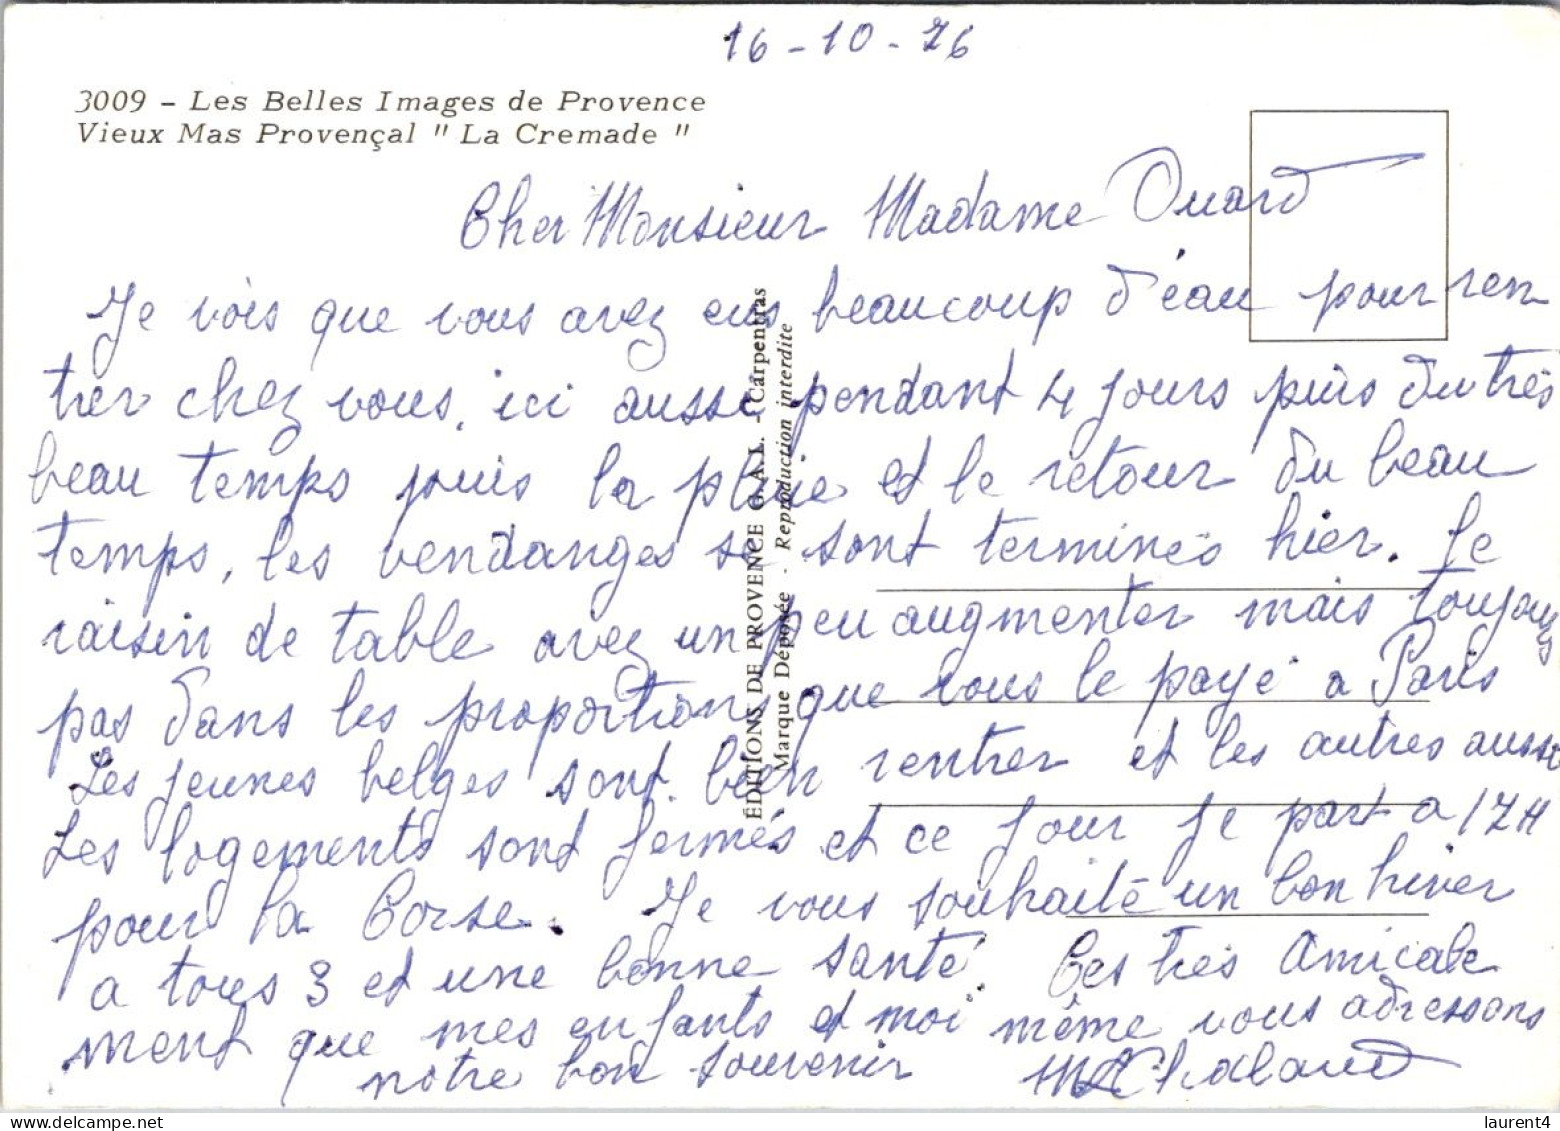 16-10-76
3009 - Les Belles Images de Provence
Vieux Mas Provençal " La Cremade "
Cher Monsieur Madame Ouard
Je vois que vous avez eus beaucoup d'éau pour ren
trer chez vous, ici aussi pendant 4 jours puis du très
beau temps puis la pluie et le retour du beau
temps, les vendanges se sont terminés hier. Le
raisin de table avez un peu augmenter mais toujours
pas dans les proportions que vous le payé a Paris
Les jeunes belges sont bien rentrer et les autres aussi
Les logements sont fermés et ce jour je part a 17H
pour la Corse. Je vous souhaite un bon hiver
a tous 3 et une bonne santé. Ces très Amicale
ment que mes enfants et moi même vous adressons
notre bon souvenir
ÉDITIONS DE PROVENCE G.A.L. - Carpentras
Marque Déposée - Reproduction interdite
laurent4